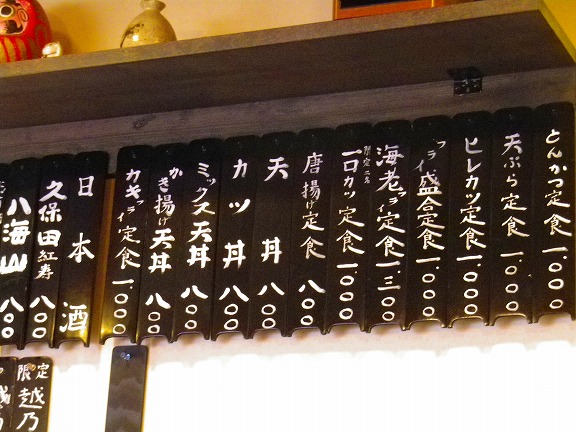 とんかつ定食 一、〇〇〇
天ぷら定食 一、〇〇〇
ヒレカツ定食 一、〇〇〇
フライ盛合定食 一、〇〇〇
海老フライ定食 一、三〇〇
一口カツ定食 一、〇〇〇
唐揚げ定食 八〇〇
天丼 八〇〇
カツ丼 八〇〇
ミックス天丼 八〇〇
かき揚げ天丼 八〇〇
カキフライ定食 一、〇〇〇
日本酒
久保田 紅寿 八〇〇
八海山 八〇〇
限定 越乃